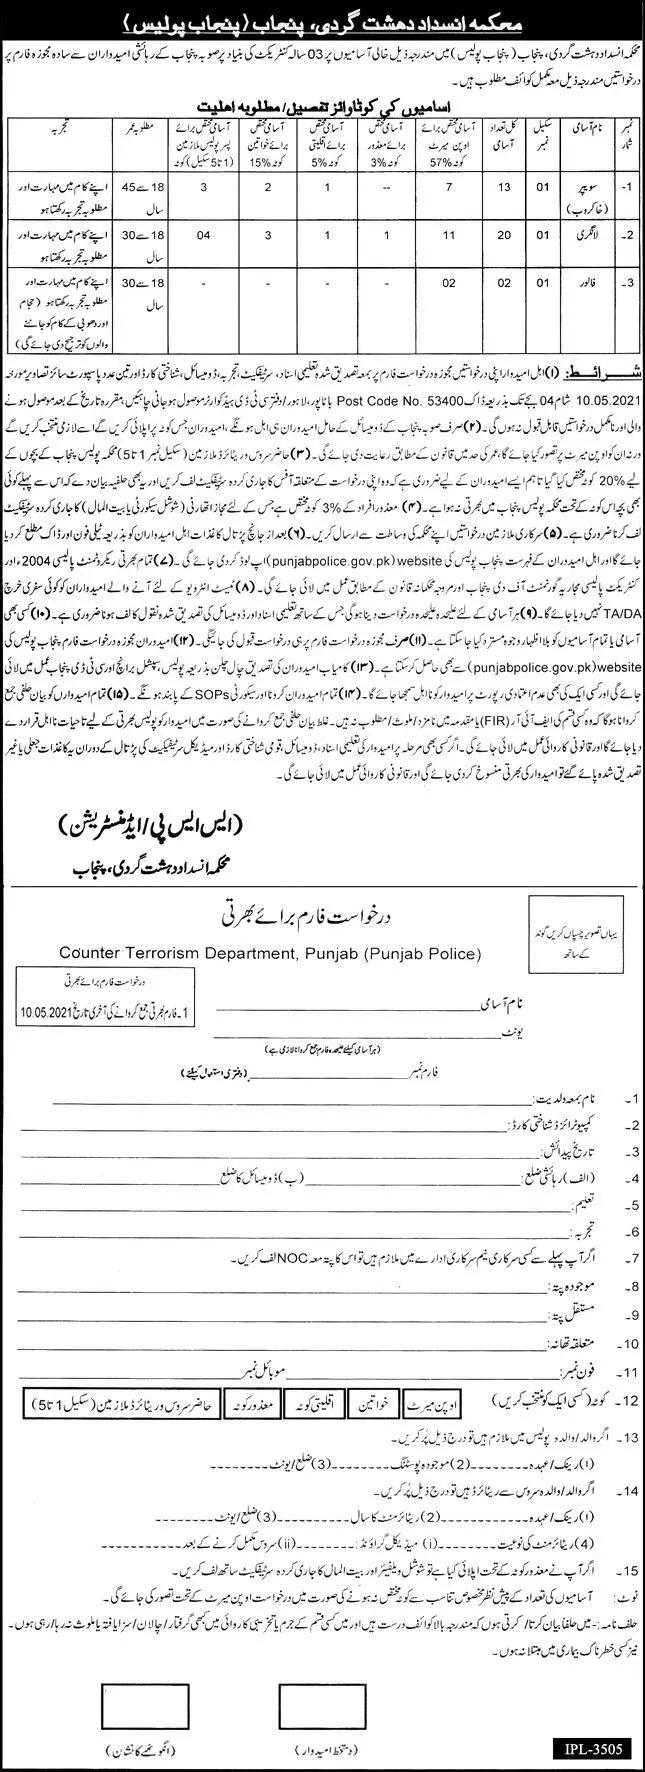 محکمہ انسداد دہشت گردی، پنجاب (پنجاب پولیس)
محکمہ انسداد دہشت گردی، پنجاب (پنجاب پولیس) میں مندرجہ ذیل خالی آسامیوں پر 03 سالہ کنٹریکٹ کی بنیاد پر صوبہ پنجاب کے رہائشی امیدواران سے سادہ مجوزہ فارم پر
درخواستیں مندرجہ ذیل معہ مکمل کوائف مطلوب ہیں۔
اسامیوں کی کوٹاوائز تفصیل/مطلوبہ اہلیت
نمبر شمار | نام آسامی | سکیل نمبر | کل تعداد آسامی | آسامی مختص برائے اوپن میرٹ کوٹہ 57% | آسامی مختص برائے معذور کوٹہ 3% | آسامی مختص برائے اقلیتی کوٹہ 5% | آسامی مختص برائے خواتین کوٹہ 15% | آسامی مختص برائے پسر پولیس ملازمین (1 تا 5 سکیل) کوٹہ | مطلوبہ عمر | تجربہ
1- | سویپر (خاکروب) | 01 | 13 | 7 | -- | 1 | 2 | 3 | 18 سے 45 سال | اپنے کام میں مہارت اور مطلوبہ تجربہ رکھتا ہو
2- | لانگری | 01 | 20 | 11 | 1 | 1 | 3 | 04 | 18 سے 30 سال | اپنے کام میں مہارت اور مطلوبہ تجربہ رکھتا ہو
3- | فالور | 01 | 02 | 02 | - | - | - | - | 18 سے 30 سال | اپنے کام میں مہارت اور مطلوبہ تجربہ رکھتا ہو (حجام اور دھوبی کے کام کو جاننے والوں کو ترجیح دی جائے گی)
شرائط: (۱) اہل امیدوار اپنی درخواستیں مجوزہ درخواست فارم پر بمعہ تصدیق شدہ تعلیمی اسناد، سرٹیفکیٹ، تجربہ، ڈومیسائل، شناختی کارڈ اور تین عدد پاسپورٹ سائز تصاویر مورخہ
10.05.2021 شام 04 بجے تک بذریعہ ڈاک Post Code No. 53400 باٹاپور، لاہور/دفتر سی ٹی ڈی ہیڈکوارٹر موصول ہو جانی چاہئیں، مقررہ تاریخ کے بعد موصول ہونے
والی اور نامکمل درخواستیں قابل قبول نہ ہوں گی۔ (۲) صرف صوبہ پنجاب کے ڈومیسائل کے حامل امیدوران ہی اہل ہونگے، امیدوران جس کوٹہ پر اپلائی کریں گے اسے لازمی منتخب کریں گے
ورنہ ان کو اوپن میرٹ پر تصور کیا جائے گا، عمر کی حد میں قانون کے مطابق رعایت دی جائے گی۔ (۳) حاضر سروس و ریٹائرڈ ملازمین (سکیل نمبر 1 تا 5) محکمہ پولیس پنجاب کے بچوں کے
لیے 20% کوٹہ مختص کیا گیا تاہم ایسے امیدوران کے لیے ضروری ہے کہ وہ اپنی درخواست کے متعلقہ آفس کا جاری کردہ سرٹیفکیٹ لف کریں اور یہ بھی حلفیہ بیان دے کہ اس سے پہلے کوئی
بھی بچہ اس کوٹہ کے تحت محکمہ پولیس پنجاب میں بھرتی نہ ہوا ہے۔ (۴) معذور افراد کے 3% کوٹہ مختص ہے جس کے لئے مجاز اتھارٹی (شوشل سکیورٹی یا بیت المال) کا جاری کردہ سرٹیفکیٹ
لف کرنا ضروری ہے۔ (۵) سرکاری ملازمین درخواستیں اپنے محکمہ کی وساطت سے ارسال کریں۔ (۶) بعد از جانچ پڑتال کاغذات اہل امیدوران کو بذریعہ ٹیلی فون اور ڈاک مطلع کر دیا
جائے گا اور اہل امیدوران کے فہرست پنجاب پولیس کی website (punjabpolice.gov.pk) اپ لوڈ کر دی جائے گی۔ (۷) تمام بھرتی ریکروٹمنٹ پالیسی 2004 ء اور
کنٹریکٹ پالیسی مجاریہ گورنمنٹ آف دی پنجاب اور مروجہ محکمانہ قانون کے مطابق عمل میں لائی جائے گی۔ (۸) ٹیسٹ انٹرویو کے لئے آنے والے امیدواران کو کوئی سفری خرچ
TA/DA نہیں دیا جائے گا۔ (۹) ہر آسامی کے لئے علیحدہ علیحدہ درخواست دینا ہو گی جس کے ساتھ تعلیمی اسناد اور ڈومیسائل کی تصدیق شدہ نقول کا لف ہونا ضروری ہے۔ (۱۰) کسی بھی
آسامی یا تمام آسامیوں کو بلا اظہار وجوہ مسترد کیا جا سکتا ہے۔ (۱۱) صرف مجوزہ درخواست فارم پر ہی درخواست قبول کی جائیگی۔ (۱۲) امیدوران مجوزہ درخواست فارم پنجاب پولیس کی
website (punjabpolice.gov.pk) سے بھی حاصل کر سکتا ہے۔ (۱۳) کامیاب امیدوران کی تصدیق چال چلن بذریعہ پولیس، سپیشل برانچ اور سی ٹی ڈی پنجاب عمل میں لائی
جائے گی اور کسی ایک کی بھی عدم اعتمادی رپورٹ پر امیدوار کو نااہل سمجھا جائے گا۔ (۱۴) تمام امیدوران کرونا اور سکورٹی SOPs کے پابند ہونگے۔ (۱۵) تمام امیدواروں کو بیان حلفی جمع
کروانا ہو گا کہ وہ کسی قسم کی ایف آئی آر (FIR) یا مقدمہ میں نامزد/ملوث/مطلوب نہ ہیں۔ غلط بیان حلفی جمع کروانے کی صورت میں امیدوار کو پولیس بھرتی کے لیے تاحیات نااہل قرار دے
دیا جائے گا اور قانونی کاروائی عمل میں لائی جائے گی۔ اگر کسی بھی مرحلہ پر امیدوار کی تعلیمی اسناد، ڈومیسائل، قومی شناختی کارڈ اور میڈیکل سرٹیفکیٹ کی پڑتال کے دوران یہ کاغذات جعلی یا غیر
تصدیق شدہ پائے گئے تو امیدوار کی بھرتی منسوخ کر دی جائے گی اور قانونی کاروائی عمل میں لائی جائے گی۔
(ایس ایس پی/ایڈمنسٹریشن)
محکمہ انسداد دہشت گردی، پنجاب
درخواست فارم برائے بھرتی
یہاں تصویر چسپاں کریں گوند کے ساتھ
Counter Terrorism Department, Punjab (Punjab Police)
درخواست فارم برائے بھرتی
1۔ فارم بھرتی جمع کروانے کی آخری تاریخ 10.05.2021
نام آسامی
یونٹ
(ہر آسامی کیلئے علیحدہ فارم جمع کروانا لازی ہے)
فارم نمبر (دفتری استعمال کیلئے)
1۔ نام بمعہ ولدیت:
2۔ کمپیوٹرائزڈ شناختی کارڈ:
3۔ تاریخ پیدائش:
4۔ (الف) رہائشی ضلع: (ب) ڈومیسائل کا ضلع
5۔ تعلیم:
6۔ تجربہ:
7۔ اگر آپ پہلے سے کسی سرکاری نیم سرکاری ادارے میں ملازم ہیں تو اس کا پتہ معہ NOC لف کریں۔
8۔ موجودہ پتہ:
9۔ مستقل پتہ:
10۔ متعلقہ تھانہ:
11۔ فون نمبر: موبائل نمبر
12۔ کوٹہ (کسی ایک کو منتخب کریں) اوپن میرٹ خواتین اقلیتی کوٹہ معذور کوٹہ حاضر سروس و ریٹائرڈ ملازمین (سکیل 1 تا 5)
13۔ اگر والد/والدہ پولیس میں ملازم ہیں تو درج ذیل پُر کریں۔
(۱) رینک/عہدہ-------- (2) موجودہ پوسٹنگ-------- (3) ضلع/یونٹ--------
14۔ اگر والد/والدہ سروس سے ریٹائرڈ ہیں تو درج ذیل پُر کریں۔
(۱) رینک/عہدہ-------- (2) ریٹائرمنٹ کا سال-------- (3) ضلع/یونٹ--------
(4) ریٹائرمنٹ کی نوعیت-------- (i) میڈیکل گراؤنڈ:-------- (ii) سروس مکمل کرنے کے بعد--------
15۔ اگر آپ نے معذور کوٹہ کے تحت اپلائی کیا ہے تو شوشل ویلفیئر اور بیت المال کا جاری کردہ سرٹیفکیٹ ساتھ لف کریں۔
نوٹ: آسامیوں کی تعداد کے پیش نظر مخصوص تناسب سے کوٹہ مختص نہ ہونے کی صورت میں درخواست اوپن میرٹ کے تحت تصور کی جائے گی۔
حلف نامہ:- میں حلفا بیان کرتا/کرتی ہوں کہ مندرجہ بالا کوائف درست ہیں اور میں کسی قسم کے جرم یا تخریبی کاروائی میں کبھی گرفتار/چالان/سزا یافتہ یا ملوث نہ رہا/رہی ہوں۔
نیز کسی خطرناک بیماری میں مبتلا نہ ہوں۔
(دستخط امیدوار) (انگوٹھے کا نشان)
IPL-3505